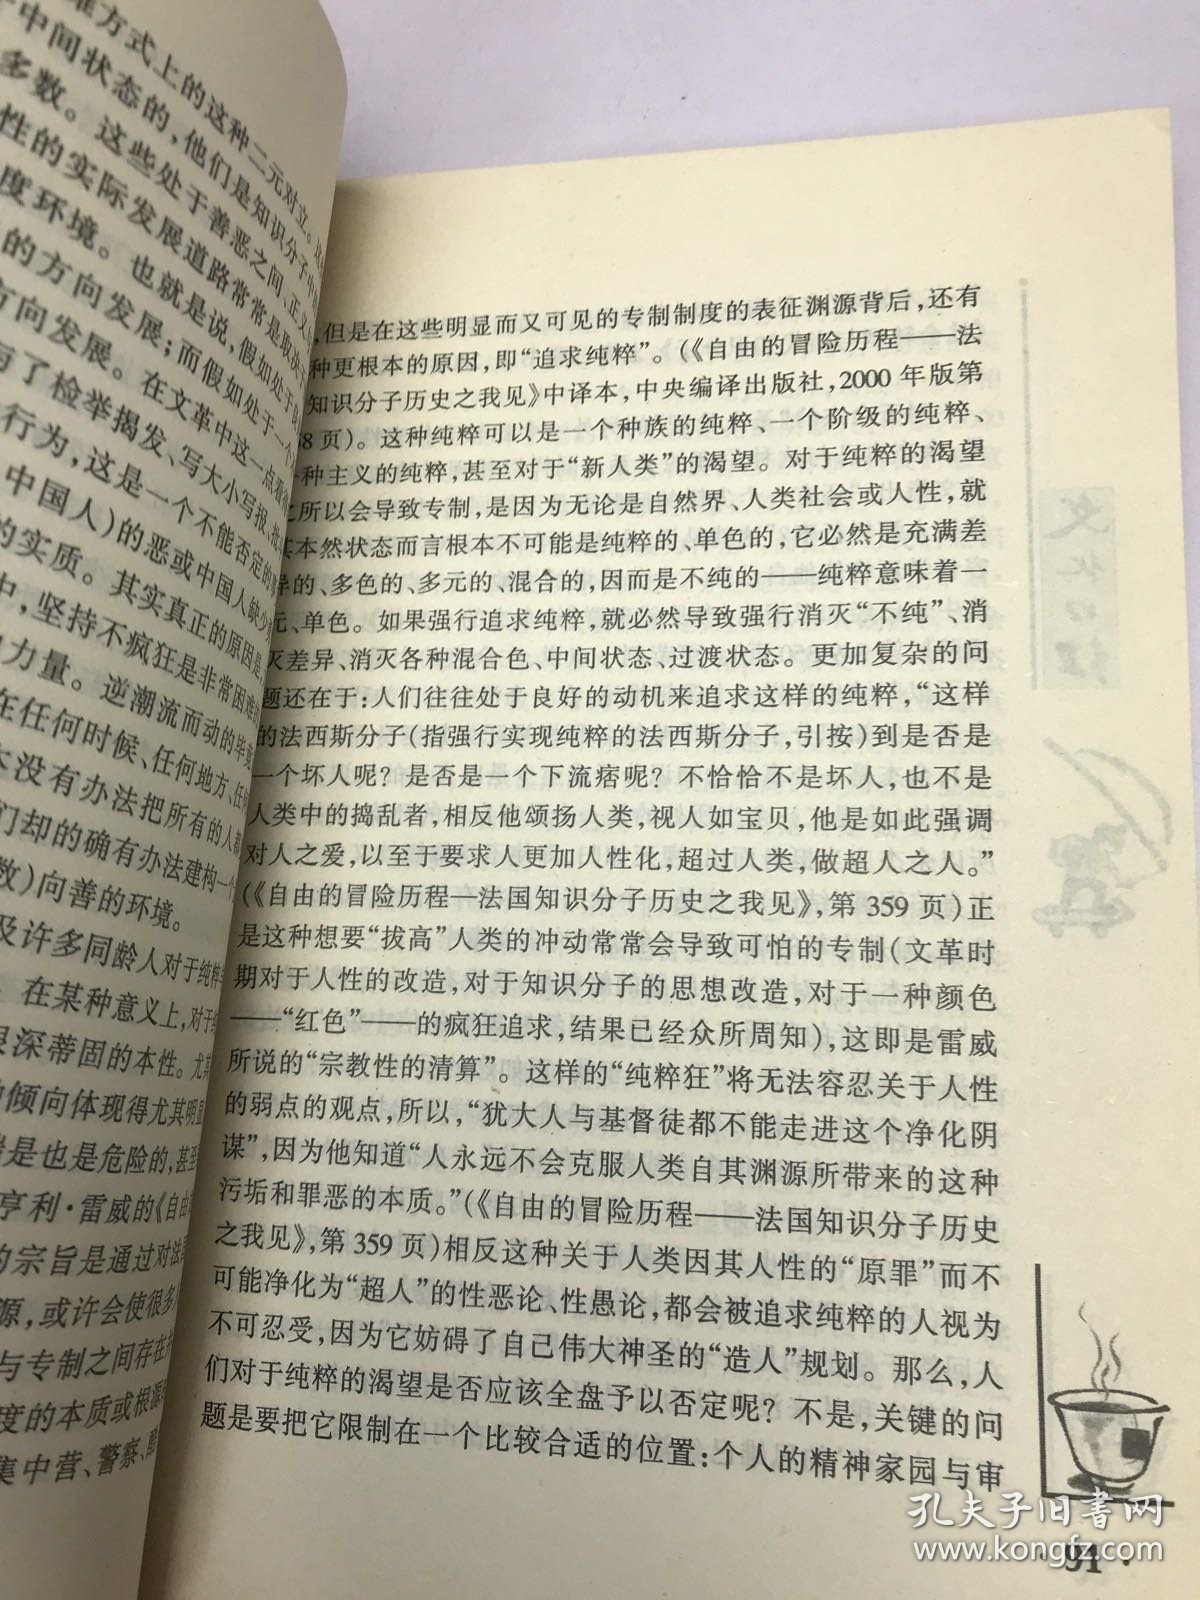 维方式上的这种二元对立。
中间状态的，他们是知识分子中
多数。这些处于善恶之间、正义
性的实际发展道路常常是取决
度环境。也就是说，假如处于
的方向发展；而假如处于一个
方向发展。在文革中这一点
了检举揭发、写大小写报、
行为，这是一个不能否定的
中国人）的恶或中国人缺少
的实质。其实真正的原因是
中，坚持不疯狂是非常困难
力量。逆潮流而动的毕竟
在任何时候、任何地方、任何
没有办法把所有的人都
们却的确有办法建构一个
数）向善的环境。
及许多同龄人对于纯粹
。在某种意义上，对于
深蒂固的本性。尤其
倾向体现得尤其明显
是也是危险的，甚至
亨利·雷威的《自由
的宗旨是通过对法
源，或许会使很多
与专制之间存在
度的本质或根源
集中营、警察、
，但是在这些明显而又可见的专制制度的表征渊源背后，还有
种更根本的原因，即“追求纯粹”。（《自由的冒险历程——法
知识分子历史之我见》中译本，中央编译出版社，2000 年版第
8 页）。这种纯粹可以是一个种族的纯粹、一个阶级的纯粹、
种主义的纯粹，甚至对于“新人类”的渴望。对于纯粹的渴望
之所以会导致专制，是因为无论是自然界、人类社会或人性，就
本然状态而言根本不可能是纯粹的、单色的，它必然是充满差
异的、多色的、多元的、混合的，因而是不纯的——纯粹意味着一
元、单色。如果强行追求纯粹，就必然导致强行消灭“不纯”、消
灭差异、消灭各种混合色、中间状态、过渡状态。更加复杂的问
题还在于：人们往往处于良好的动机来追求这样的纯粹，“这样
的法西斯分子（指强行实现纯粹的法西斯分子，引按）到是否是
一个坏人呢？是否是一个下流痞呢？不恰恰不是坏人，也不是
人类中的捣乱者，相反他颂扬人类，视人如宝贝，他是如此强调
对人之爱，以至于要求人更加人性化，超过人类，做超人之人。”
（《自由的冒险历程—法国知识分子历史之我见》，第 359 页）正
是这种想要“拔高”人类的冲动常常会导致可怕的专制（文革时
期对于人性的改造，对于知识分子的思想改造，对于一种颜色
——“红色”——的疯狂追求，结果已经众所周知），这即是雷威
所说的“宗教性的清算”。这样的“纯粹狂”将无法容忍关于人性
的弱点的观点，所以，“犹大人与基督徒都不能走进这个净化阴
谋”，因为他知道“人永远不会克服人类自其渊源所带来的这种
污垢和罪恶的本质。”（《自由的冒险历程——法国知识分子历史
之我见》，第 359 页）相反这种关于人类因其人性的“原罪”而不
可能净化为“超人”的性恶论、性愚论，都会被追求纯粹的人视为
不可忍受，因为它妨碍了自己伟大神圣的“造人”规划。那么，人
们对于纯粹的渴望是否应该全盘予以否定呢？不是，关键的问
题是要把它限制在一个比较合适的位置：个人的精神家园与审
91
孔夫子旧书网
www.kongfz.com